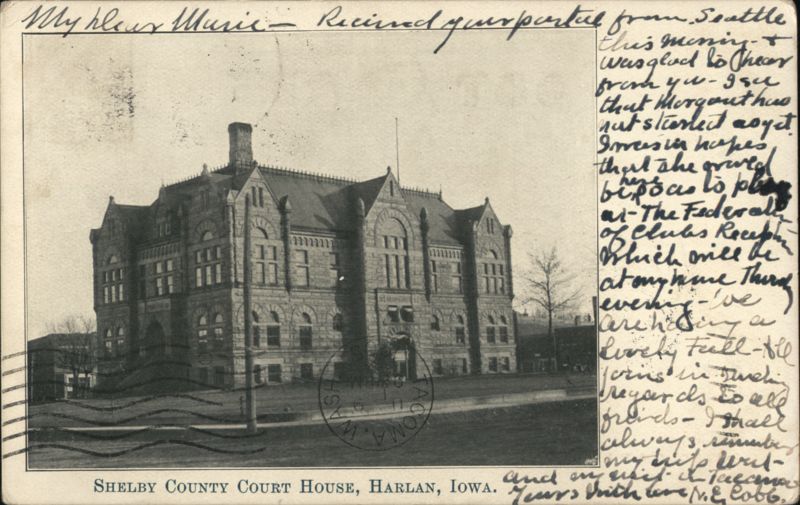 My Dear Marie - Received your postal from Seattle
this morning - &
was glad to hear
from you - I see
that Margaret has
not started as yet.
I was in hopes
that she would
be here so as to play
at - The Federation
of Clubs Reception
which will be
at my home Thursday
evening - We
are having a
lovely Fall - All
joins in sending
regards to all
friends - I shall
always remember
my trip West -
and my visit in Tacoma
Yours with love N.E. Cobb.
TACOMA, WASH.
11
SHELBY COUNTY COURT HOUSE, HARLAN, IOWA.